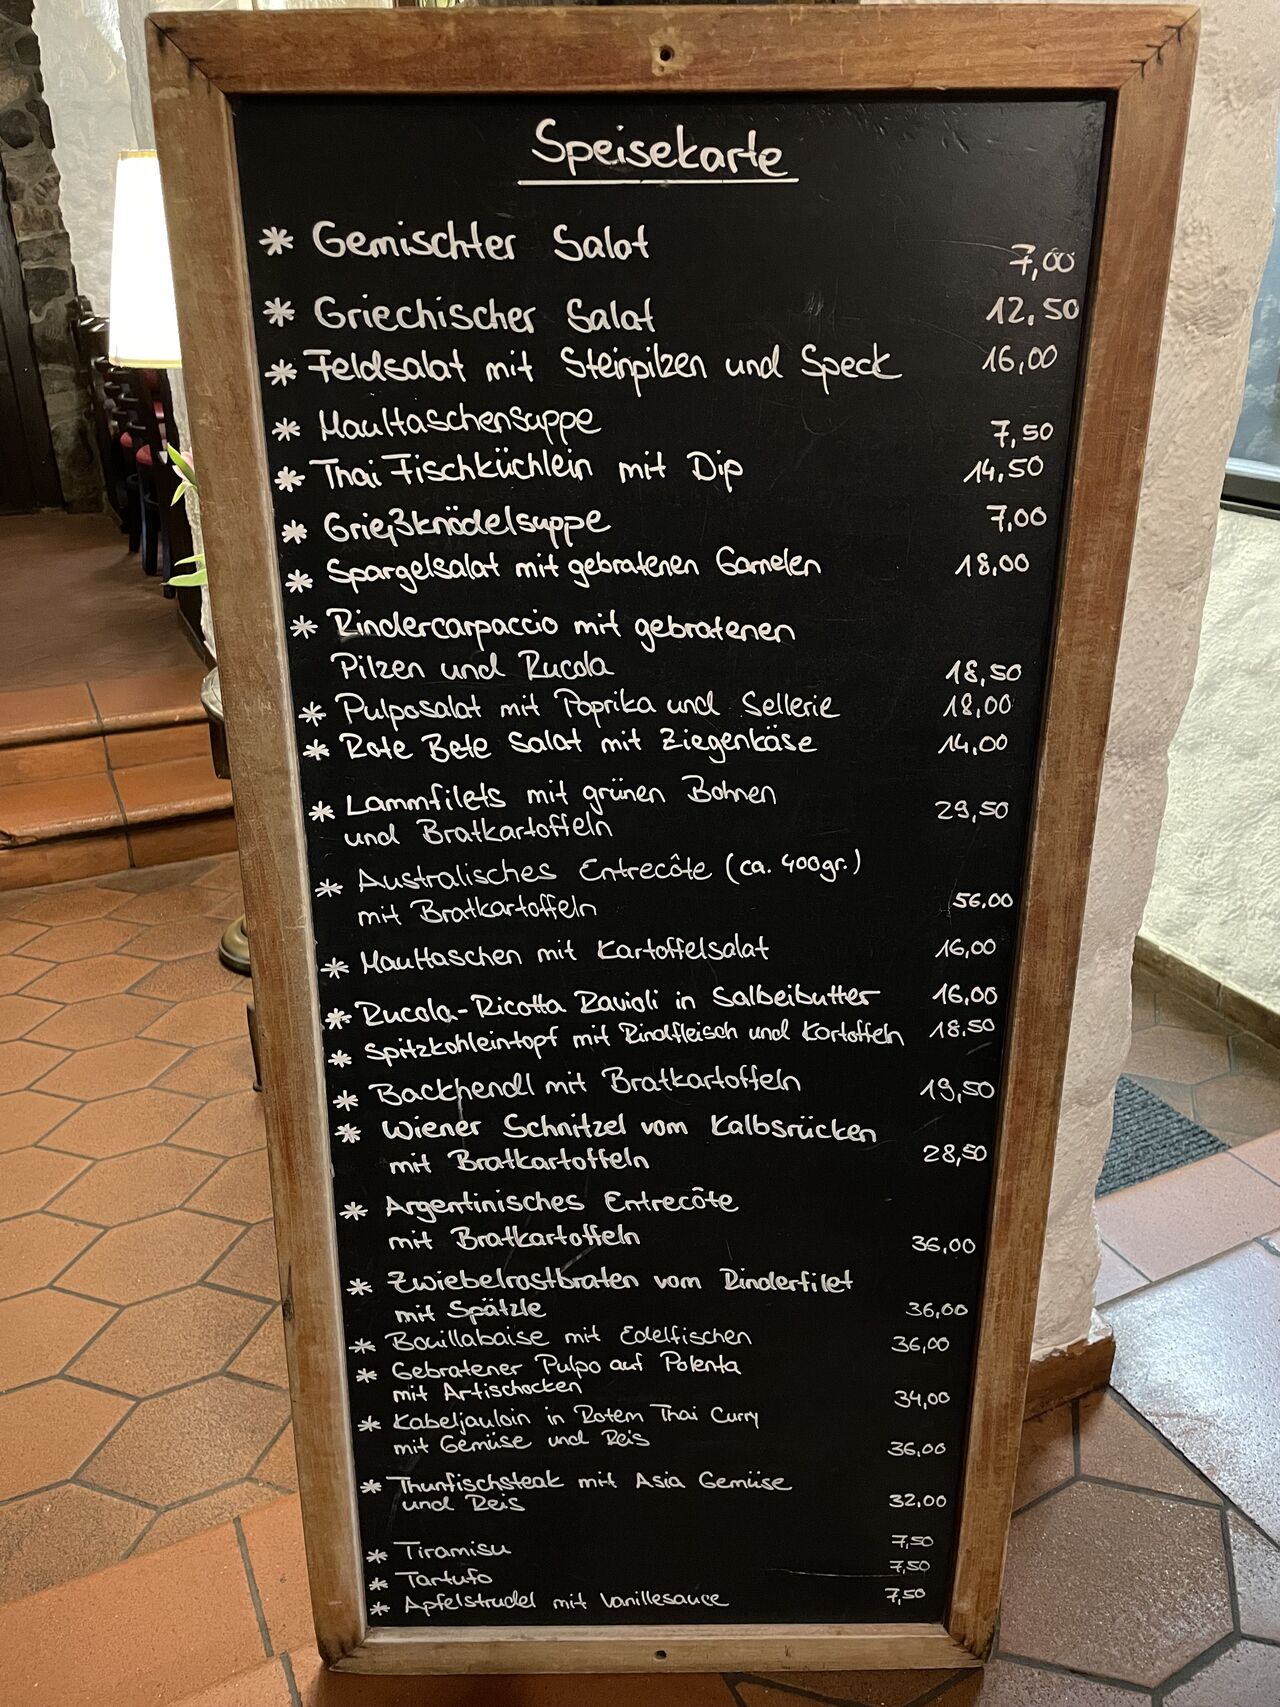 Speisekarte
* Gemischter Salat 7,00
* Griechischer Salat 12,50
* Feldsalat mit Steinpilzen und Speck 16,00
* Maultaschensuppe 7,50
* Thai Fischküchlein mit Dip 14,50
* Grießknödelsuppe 7,00
* Spargelsalat mit gebratenen Garnelen 18,00
* Rindercarpaccio mit gebratenen
Pilzen und Rucola 18,50
* Pulposalat mit Paprika und Sellerie 18,00
* Rote Bete Salat mit Ziegenkäse 14,00
* Lammfilets mit grünen Bohnen
und Bratkartoffeln 29,50
* Australisches Entrecôte (ca. 400gr.)
mit Bratkartoffeln 56,00
* Maultaschen mit Kartoffelsalat 16,00
* Rucola-Ricotta Ravioli in Salbeibutter 16,00
* Spitzkohleintopf mit Rindfleisch und Kartoffeln 18.50
* Backhendl mit Bratkartoffeln 19,50
* Wiener Schnitzel vom Kalbsrücken
mit Bratkartoffeln 28,50
* Argentinisches Entrecôte
mit Bratkartoffeln 36,00
* Zwiebelrostbraten vom Rinderfilet
mit Spätzle 36,00
* Bouillabaise mit Edelfischen 36,00
* Gebratener Pulpo auf Polenta
mit Artischocken 34,00
* Kabeljauloin in Rotem Thai Curry
mit Gemüse und Reis 36,00
* Thunfischsteak mit Asia Gemüse
und Reis 32,00
* Tiramisu 7,50
* Tartufo 7,50
* Apfelstrudel mit Vanillesauce 7,50